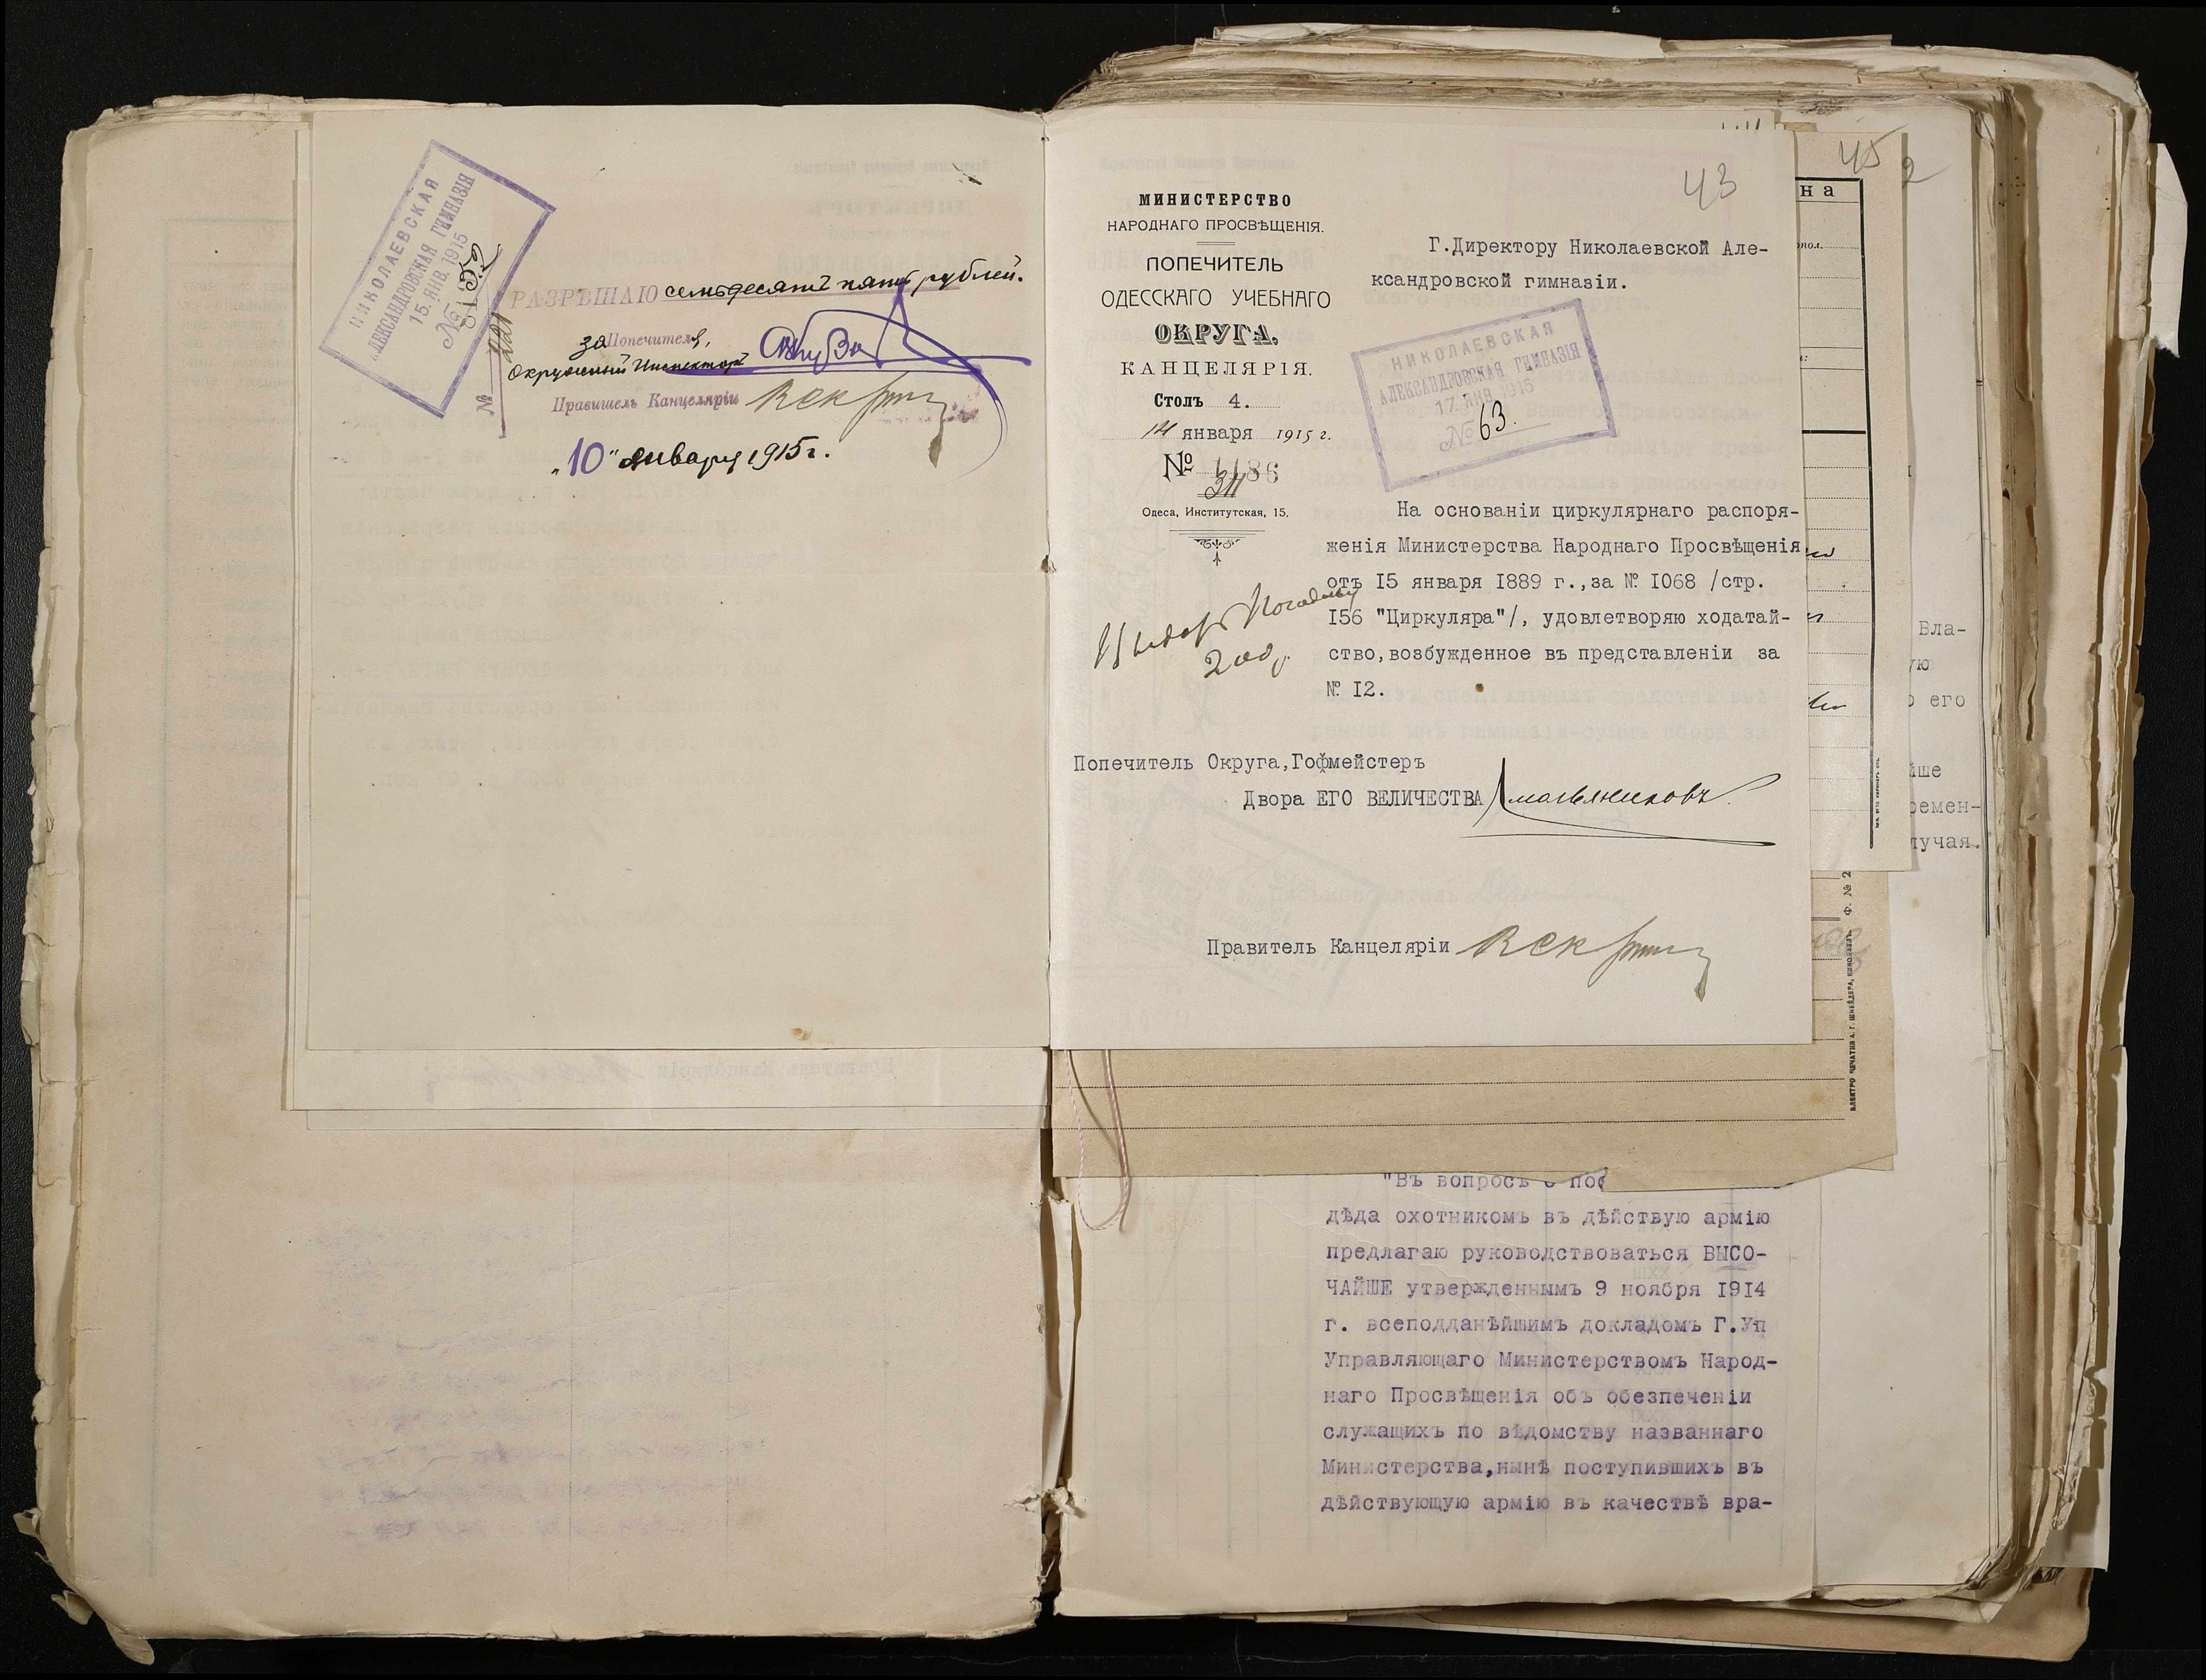 НИКОЛАЕВСКАЯ
АЛЕКСАНДРОВСКАЯ ГИМНАЗІЯ
15. ЯНВ. 1915
№
РАЗРѢШАЮ семьдесятъ пять рублей.
За Попечителя,
Окружный Инспекторъ
№ 221
Правитель Канцеляріи
"10" января 1915 г.
43
МИНИСТЕРСТВО
НАРОДНАГО ПРОСВѢЩЕНІЯ.
ПОПЕЧИТЕЛЬ
ОДЕССКАГО УЧЕБНАГО
ОКРУГА.
КАНЦЕЛЯРІЯ.
Столъ 4.
14 января 1915 г.
№
Одеса, Институтская, 15.
Г.Директору Николаевской Але-
ксандровской гимназіи.
НИКОЛАЕВСКАЯ
АЛЕКСАНДРОВСКАЯ ГИМНАЗІЯ
17. ЯНВ. 1915
№ 63.
На основаніи циркулярнаго распоря-
женія Министерства Народнаго Просвѣщенія
отъ I5 января I889 г.,за № I068 /стр.
I56 "Циркуляра"/, удовлетворяю ходатай-
ство,возбужденное въ представленіи за
№ I2.
Попечитель Округа,Гофмейстеръ
Двора ЕГО ВЕЛИЧЕСТВА
Правитель Канцеляріи
45
2
на
Вла-
ую
его
йше
ремен-
лучая.
Ф. № 2
ЭЛЕКТРО ПЕЧАТНЯ А. Г. ШНЕЙДЕРА, НИКОЛАЕВЪ
"Въ вопросѣ о пос
дѣда охотникомъ въ дѣйствую армію
предлагаю руководствоваться ВЫСО-
ЧАЙШЕ утвержденнымъ 9 ноября I9I4
г. всеподданѣйшимъ докладомъ Г.Уп
Управляющаго Министерствомъ Народ-
наго Просвѣщенія объ обезпеченіи
служащихъ по вѣдомству названнаго
Министерства,нынѣ поступившихъ въ
дѣйствующую армію въ качествѣ вра-